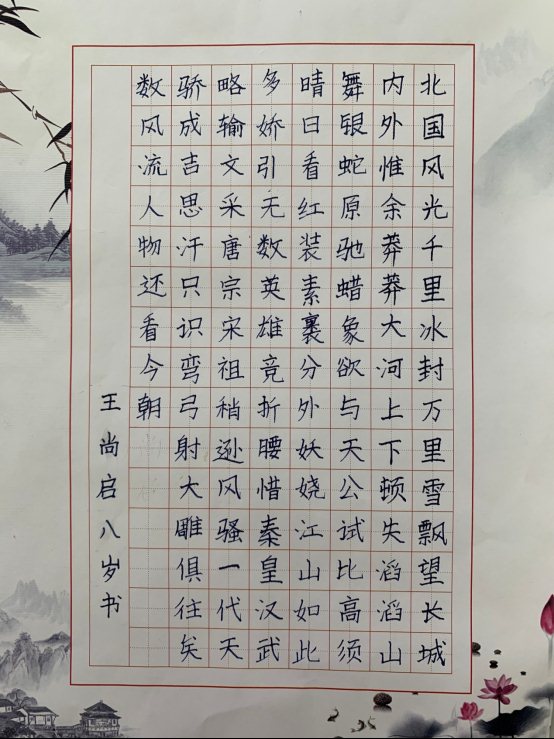 北国风光千里冰封万里雪飘望长城
内外惟余莽莽大河上下顿失滔滔山
舞银蛇原驰蜡象欲与天公试比高须
晴日看红装素裹分外妖娆江山如此
多娇引无数英雄竞折腰惜秦皇汉武
略输文采唐宗宋祖稍逊风骚一代天
骄成吉思汗只识弯弓射大雕俱往矣
数风流人物还看今朝
王尚启八岁书